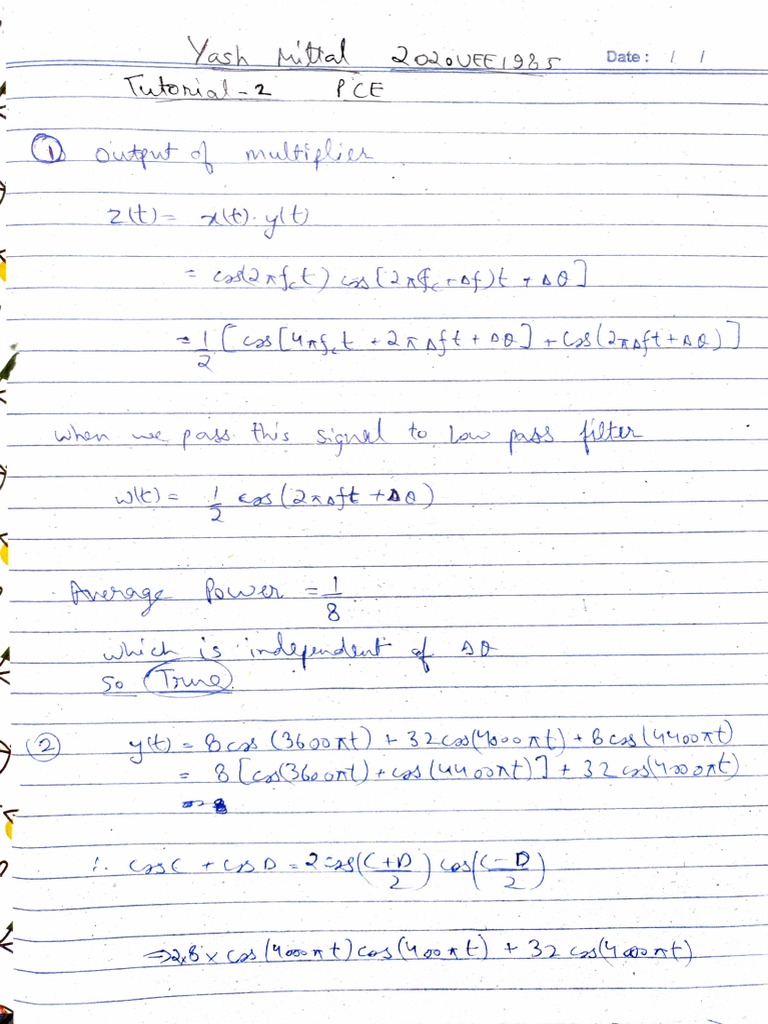 Yash Mittal 2020UEE1985 Date: / /
Tutorial-2 PCE
① output of multiplier
z(t) = x(t).y(t)
= cos(2πfct) cos[2π(fc+Δf)t + Δθ]
= 1/2 [cos[4πfct + 2πΔft + Δθ] + cos(2πΔft+Δθ)]
when we pass this signal to low pass filter
w(t) = 1/2 cos(2πΔft + Δθ)
Average Power = 1/8
which is independent of Δθ
so True
② y(t) = 8cos(3600πt) + 32cos(4000πt) + 8cos(4400πt)
= 8[cos(3600πt) + cos(4400πt)] + 32cos(4000πt)
∴ cosC + cosD = 2cos(C+D/2) cos(C-D/2)
⇒ 2x8 x cos(4000πt) cos(400πt) + 32 cos(4000πt)